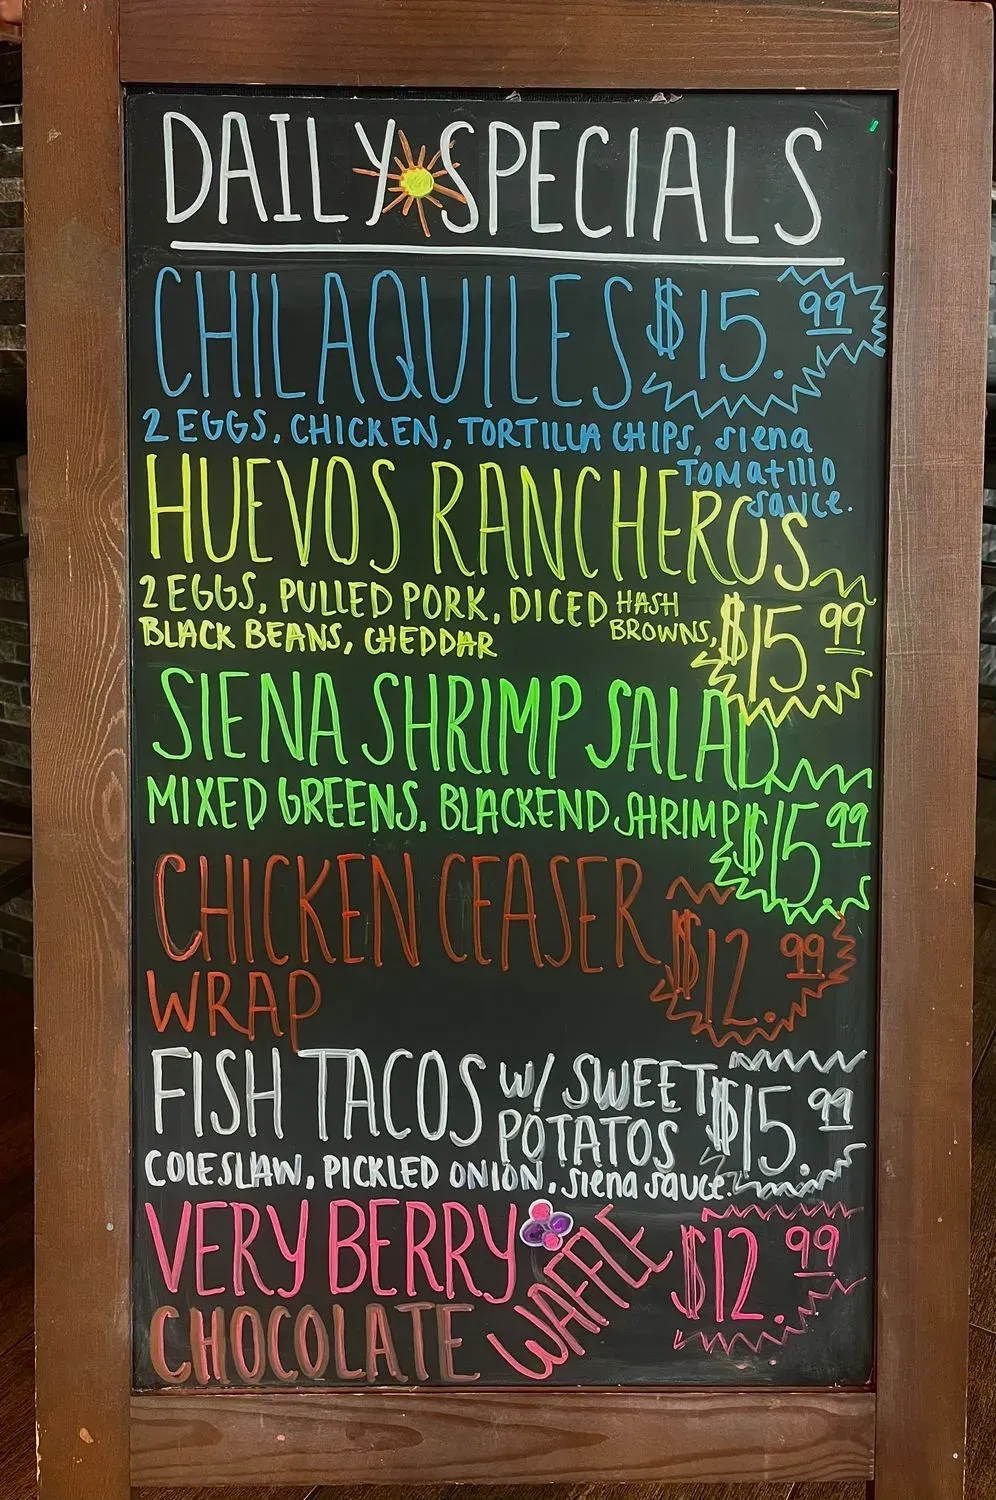 DAILY SPECIALS
CHILAQUILES $15.99
2 EGGS, CHICKEN, TORTILLA CHIPS, siena
TOMATILLO
sauce.
HUEVOS RANCHEROS
2 EGGS, PULLED PORK, DICED HASH
BROWNS,
BLACK BEANS, CHEDDAR
$15.99
SIENA SHRIMP SALAD
MIXED GREENS, BLACKEND SHRIMP $15.99
CHICKEN CEASER
WRAP
$12.99
FISH TACOS W/ SWEET
POTATOS
$15.99
COLESLAW, PICKLED ONION, siena sauce.
VERY BERRY
CHOCOLATE WAFFLE
$12.99